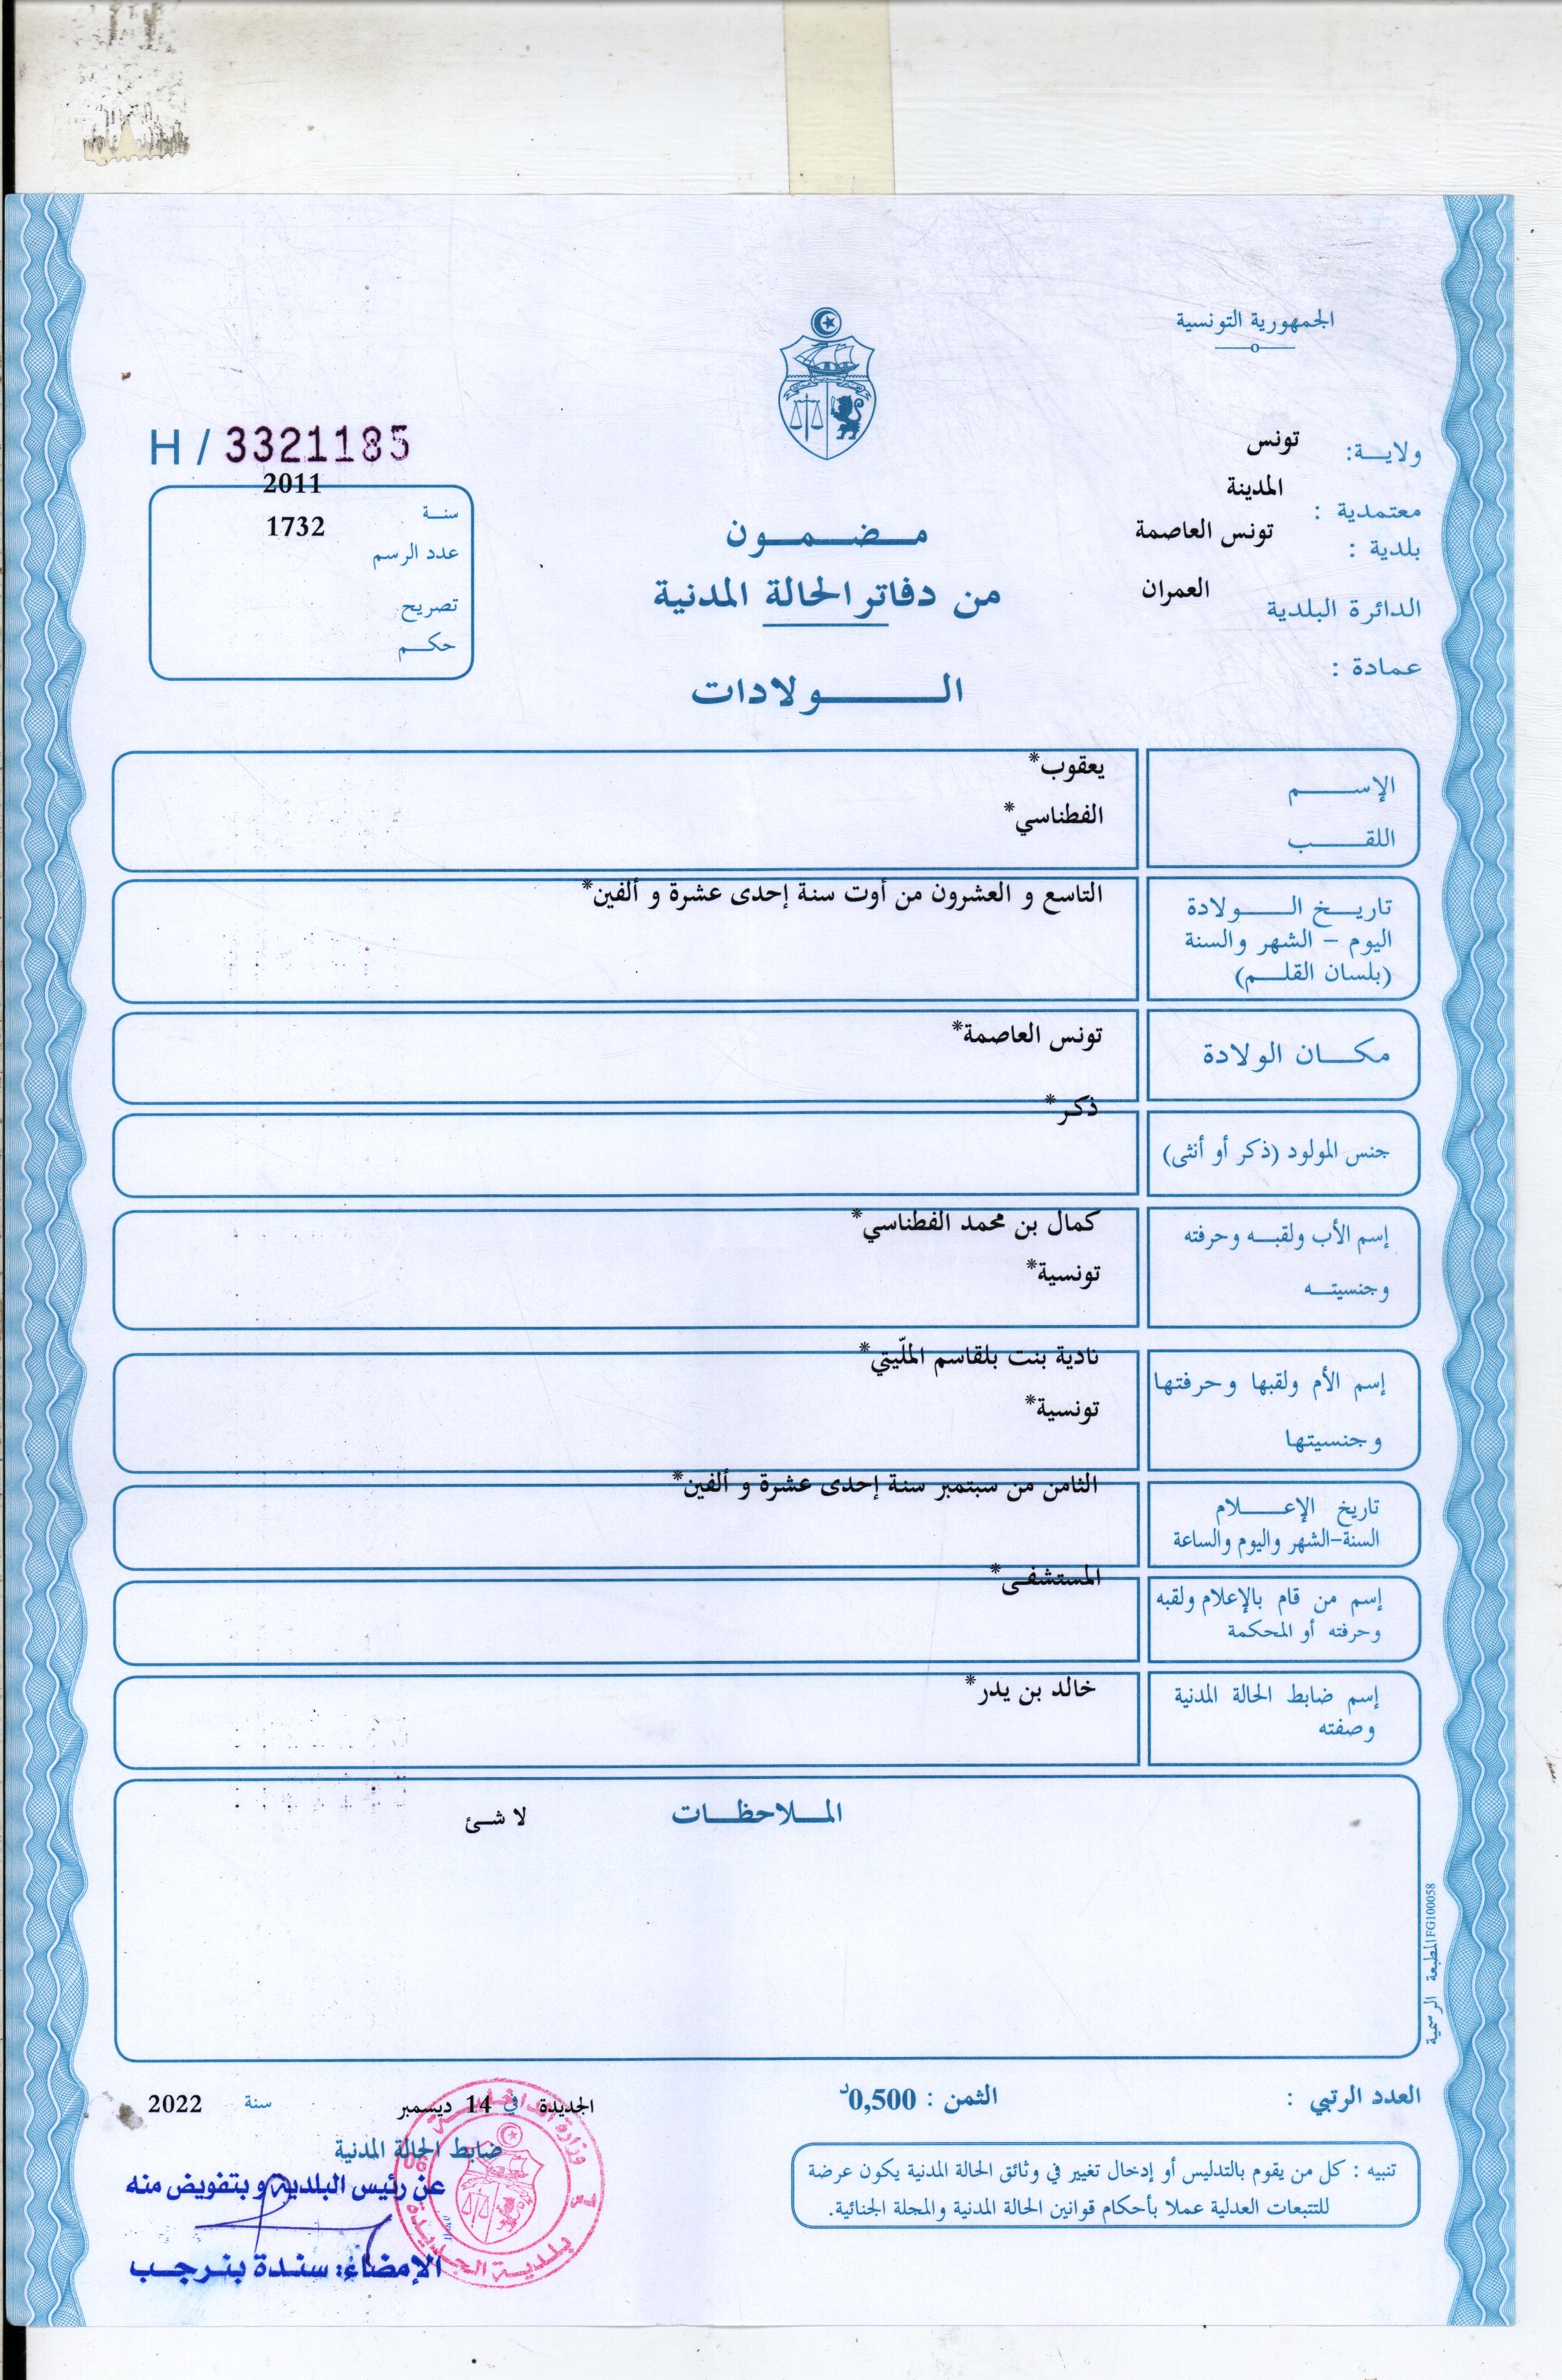 الجمهورية التونسية
ولاية: تونس
معتمدية : المدينة
بلدية : تونس العاصمة
الدائرة البلدية العمران
عمادة :
مضمون
من دفاتر الحالة المدنية
الولادات
H / 3321185
سنة 2011
عدد الرسم 1732
تصريح
حكم
الإسم يعقوب*
اللقب الفطناسي*
تاريخ الولادة التاسع و العشرون من أوت سنة إحدى عشرة و ألفين*
اليوم – الشهر والسنة
(بلسان القلم)
مكان الولادة تونس العاصمة*
جنس المولود (ذكر أو أنثى) ذكر*
إسم الأب ولقبه وحرفته كمال بن محمد الفطناسي*
وجنسيته تونسية*
إسم الأم ولقبها وحرفتها نادية بنت بلقاسم الملّيتي*
وجنسيتها تونسية*
تاريخ الإعلام الثامن من سبتمبر سنة إحدى عشرة و ألفين*
السنة-الشهر واليوم والساعة
إسم من قام بالإعلام ولقبه المستشفى*
وحرفته أو المحكمة
إسم ضابط الحالة المدنية خالد بن يدر*
وصفته
الملاحظات لا شئ
المطبعة الرسمية FG100058
العدد الرتبي :
الثمن : 0,500د
الجديدة في 14 ديسمبر سنة 2022
ضابط الحالة المدنية
عن رئيس البلدية و بتفويض منه
الإمضاء: سندة بنرجب
بلدية الجديدة
06
تنبيه : كل من يقوم بالتدليس أو إدخال تغيير في وثائق الحالة المدنية يكون عرضة
للتتبعات العدلية عملا بأحكام قوانين الحالة المدنية والمجلة الجنائية.